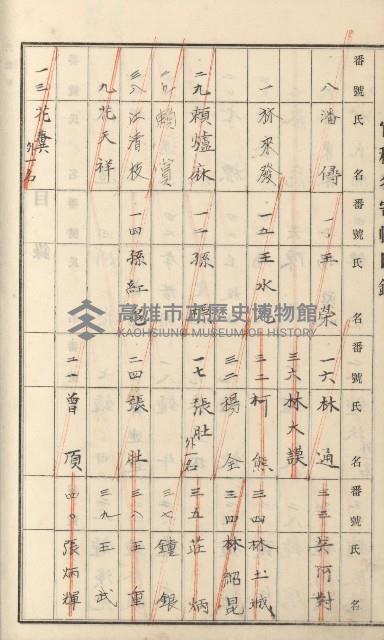 番號 氏名
八 潘
一 孫來發
二九 賴爐麻
二八 江清枝
九 花天祥
一三 花糞 外一名
番號 氏名
一〇 王榮
一五 王水
一二 孫
一四 孫紅
番號 氏名
一六 林通
三六 林大謨
三二 柯熊
三三 楊全
一七 張肚 外一名
二四 張肚
二一 曾項
番號 氏名
三三 吳阿對
三四 林土城
三四 林紹昆
三五 莊炳
三七 鐘銀
三八 王重
三九 王武
四〇 張炳輝
目錄
高雄市立歷史博物館
KAOHSIUNG MUSEUM OF HISTORY